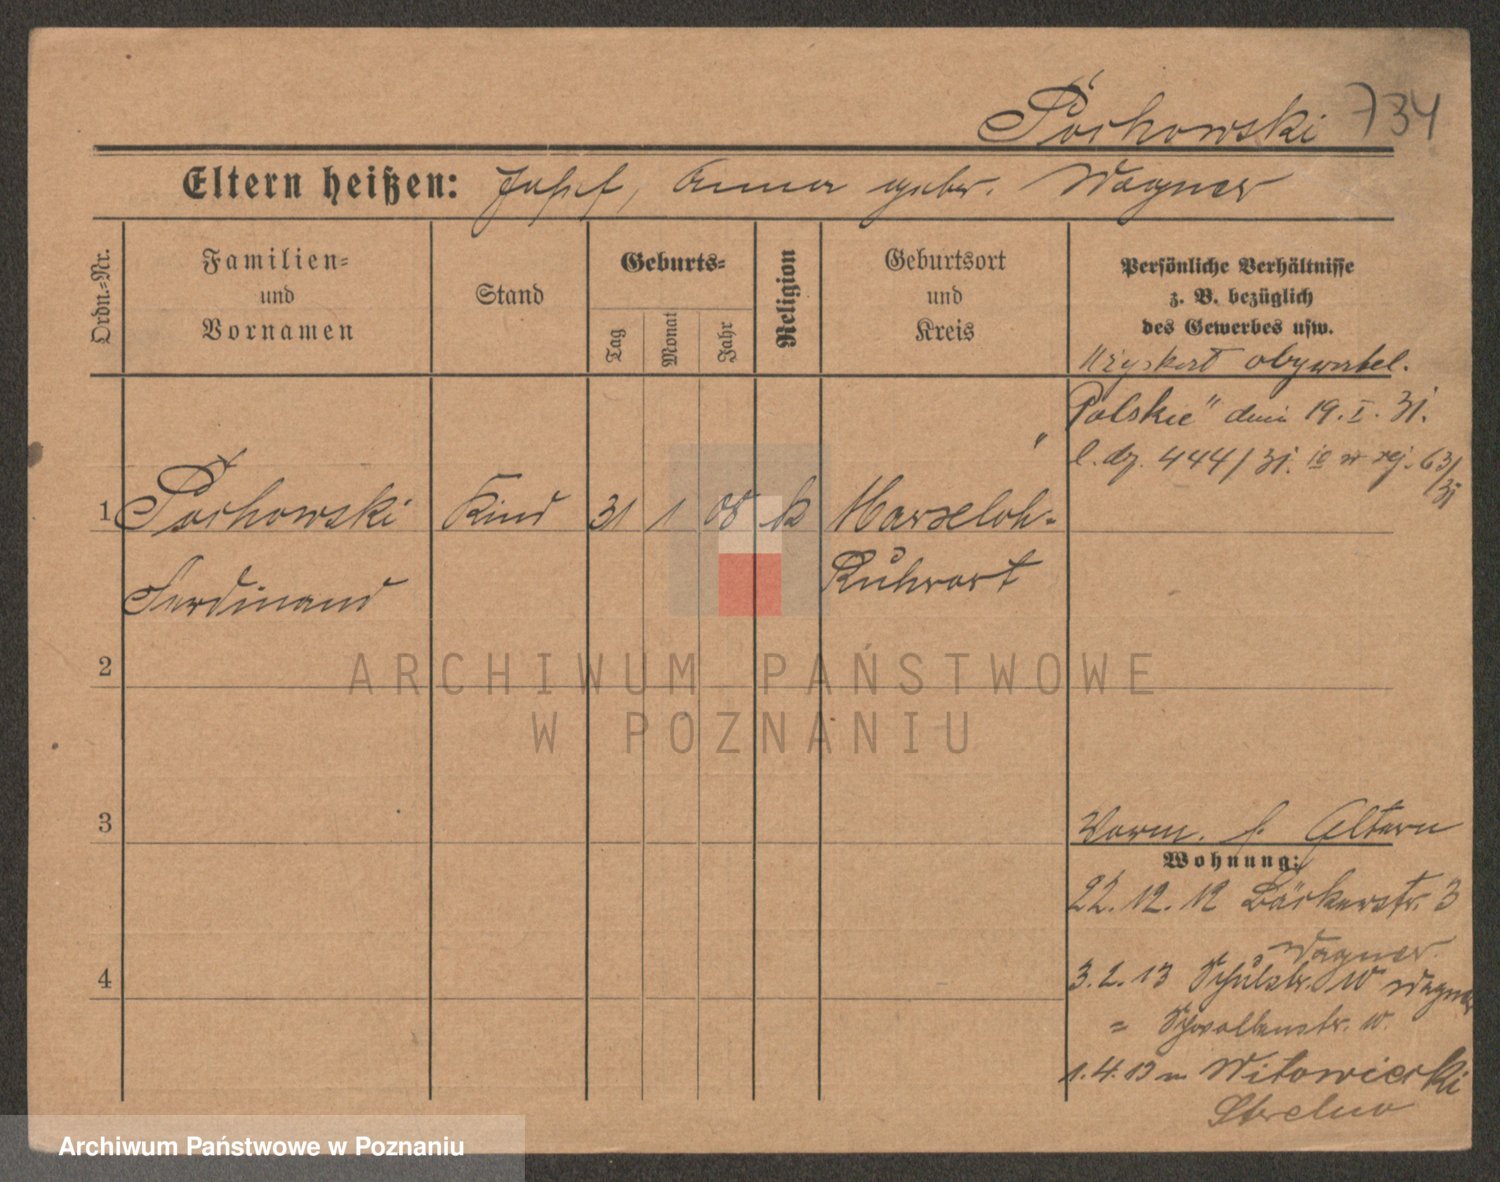 Pöchowski 734
Eltern heißen: Josef, Anna gebr. Wagner
Ordn.-Nr.
Familien-
und
Vornamen
Stand
Geburts-
Tag
Monat
Jahr
Religion
Geburtsort
und
Kreis
Persönliche Verhältnisse
z. B. bezüglich
des Gewerbes usw.
obywatel.
Polskie" dnia 19. I. 31.
l. dz. 444/31. rej. 63/31
1 Pöchowski Kind 31 1 08 k Marxloh-
Ferdinand Ruhrort
2
3
4
Vorm. f. Eltern
Wohnung:
22. 12. 12 Bäckerstr. 3
Wagner
3. 2. 13 Schulstr. 10 Wagner
= Schwalbenstr. 10.
1. 4. 13 n Witowicerki
Strelno
ARCHIWUM PAŃSTWOWE
W POZNANIU
Archiwum Państwowe w Poznaniu